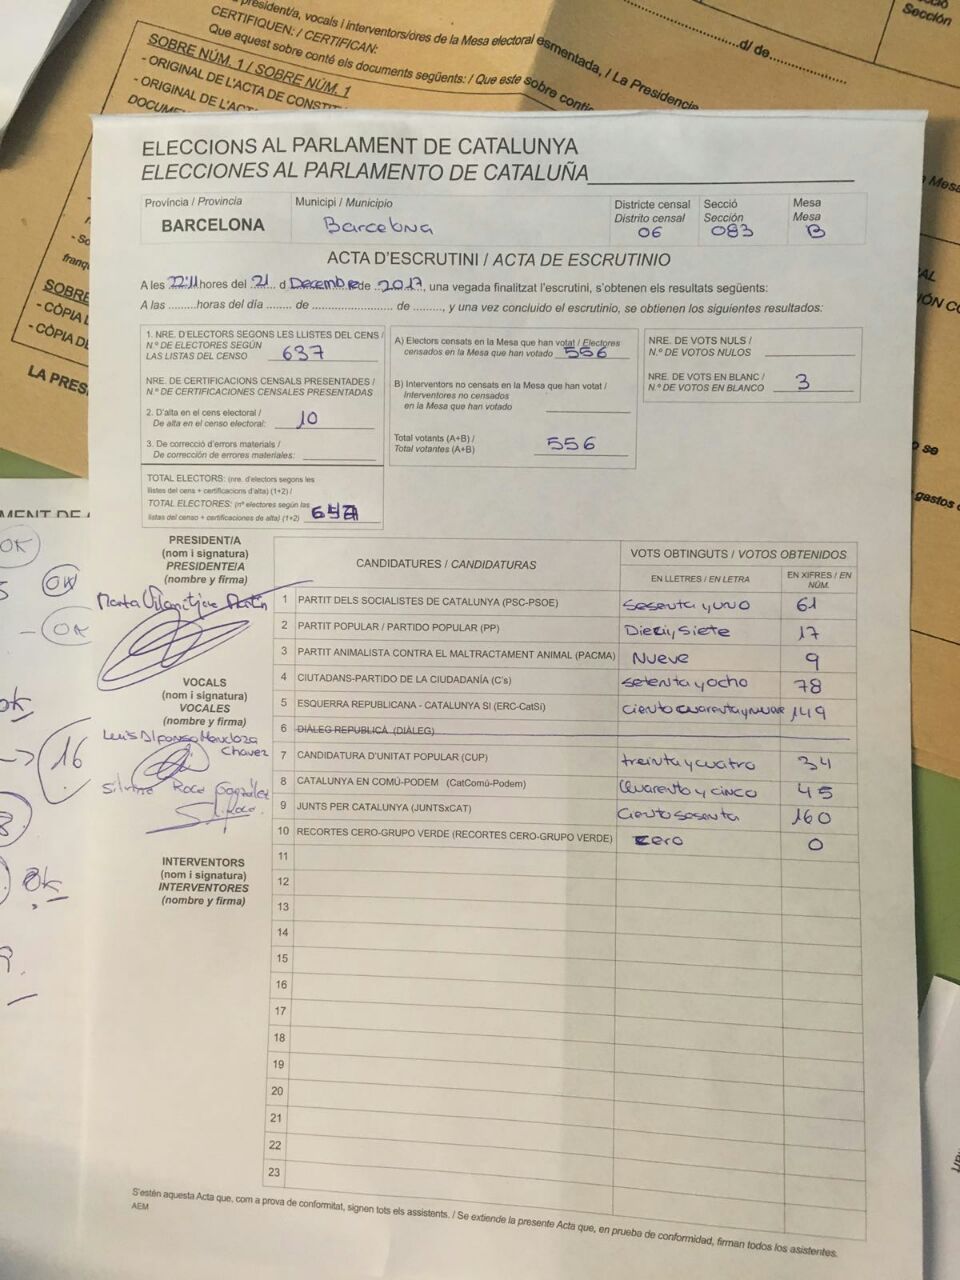 president/a, vocals i interventors/ores de la Mesa electoral esmentada, / La Presidencia
CERTIFIQUEN: / CERTIFICAN:
Que aquest sobre conté els documents següents: / Que este sobre
d/ de
Sección
SOBRE NÚM. 1 / SOBRE NÚM. 1
- ORIGINAL DE L'ACTA DE CONSTIT
ORIGINAL DE L'ACT
DOCUM
ELECCIONS AL PARLAMENT DE CATALUNYA
ELECCIONES AL PARLAMENTO DE CATALUÑA
Província / Provincia
BARCELONA
Municipi / Municipio
Barcelona
Districte censal
Distrito censal
06
Secció
Sección
083
Mesa
Mesa
B
ACTA D'ESCRUTINI / ACTA DE ESCRUTINIO
A les 22:11 hores del 21 d Decembre de 2017, una vegada finalitzat l'escrutini, s'obtenen els resultats següents:
A las .........horas del día ....... de ........................ de ........., y una vez concluido el escrutinio, se obtienen los siguientes resultados:
1. NRE. D'ELECTORS SEGONS LES LLISTES DEL CENS /
N.º DE ELECTORES SEGÚN
LAS LISTAS DEL CENSO 637
NRE. DE CERTIFICACIONS CENSALS PRESENTADES /
N.º DE CERTIFICACIONES CENSALES PRESENTADAS
2. D'alta en el cens electoral /
De alta en el censo electoral: 10
3. De correcció d'errors materials /
De corrección de errores materiales:
TOTAL ELECTORS: (nre. d'electors segons les
llistes del cens + certificacions d'alta) (1+2) /
TOTAL ELECTORES: (nº electores según las
listas del censo + certificaciones de alta) (1+2)
A) Electors censats en la Mesa que han votat / Electores
censados en la Mesa que han votado 556
B) Interventors no censats en la Mesa que han votat /
Interventores no censados
en la Mesa que han votado
Total votants (A+B) /
Total votantes (A+B) 556
NRE. DE VOTS NULS /
N.º DE VOTOS NULOS
NRE. DE VOTS EN BLANC /
N.º DE VOTOS EN BLANCO 3
PRESIDENT/A
(nom i signatura)
PRESIDENTE/A
(nombre y firma)
VOCALS
(nom i signatura)
VOCALES
(nombre y firma)
Luis Alfonso Mendoza
Chavez
INTERVENTORS
(nom i signatura)
INTERVENTORES
(nombre y firma)
CANDIDATURES / CANDIDATURAS
VOTS OBTINGUTS / VOTOS OBTENIDOS
EN LLETRES / EN LETRA
EN XIFRES / EN NÚM.
1 PARTIT DELS SOCIALISTES DE CATALUNYA (PSC-PSOE) sesenta y uno 61
2 PARTIT POPULAR / PARTIDO POPULAR (PP) Diez y Siete 17
3 PARTIT ANIMALISTA CONTRA EL MALTRACTAMENT ANIMAL (PACMA) Nueve 9
4 CIUTADANS-PARTIDO DE LA CIUDADANÍA (C's) setenta y ocho 78
5 ESQUERRA REPUBLICANA - CATALUNYA SÍ (ERC-CatSí) ciento cuarenta y nueve 149
6 DIÀLEG REPUBLICÀ (DIÀLEG)
7 CANDIDATURA D'UNITAT POPULAR (CUP) treinta y cuatro 34
8 CATALUNYA EN COMÚ-PODEM (CatComú-Podem) Cuarenta y cinco 45
9 JUNTS PER CATALUNYA (JUNTSxCAT) Ciento sesenta 160
10 RECORTES CERO-GRUPO VERDE (RECORTES CERO-GRUPO VERDE) zero 0
11
12
13
14
15
16
17
18
19
20
21
22
23
S'estén aquesta Acta que, com a prova de conformitat, signen tots els assistents. / Se extiende la presente Acta que, en prueba de conformidad, firman todos los asistentes.
AEM
OK
OK
OK
ok
16
Ok